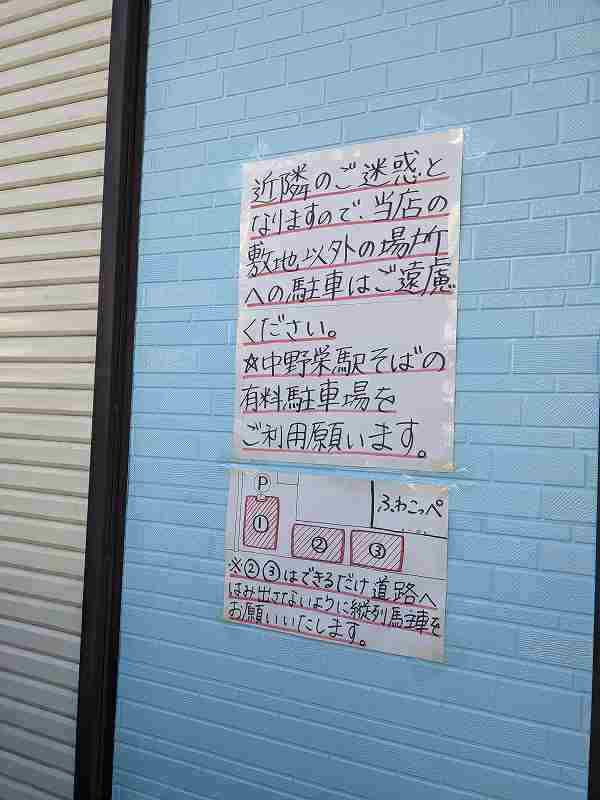 近隣のご迷惑と
なりますので、当店の
敷地以外の場所
への駐車はご遠慮
ください。
☆中野栄駅そばの
有料駐車場を
ご利用願います。
P
ふわこっぺ
① ② ③
※②③はできるだけ道路へ
はみ出さないように縦列駐車を
お願いいたします。